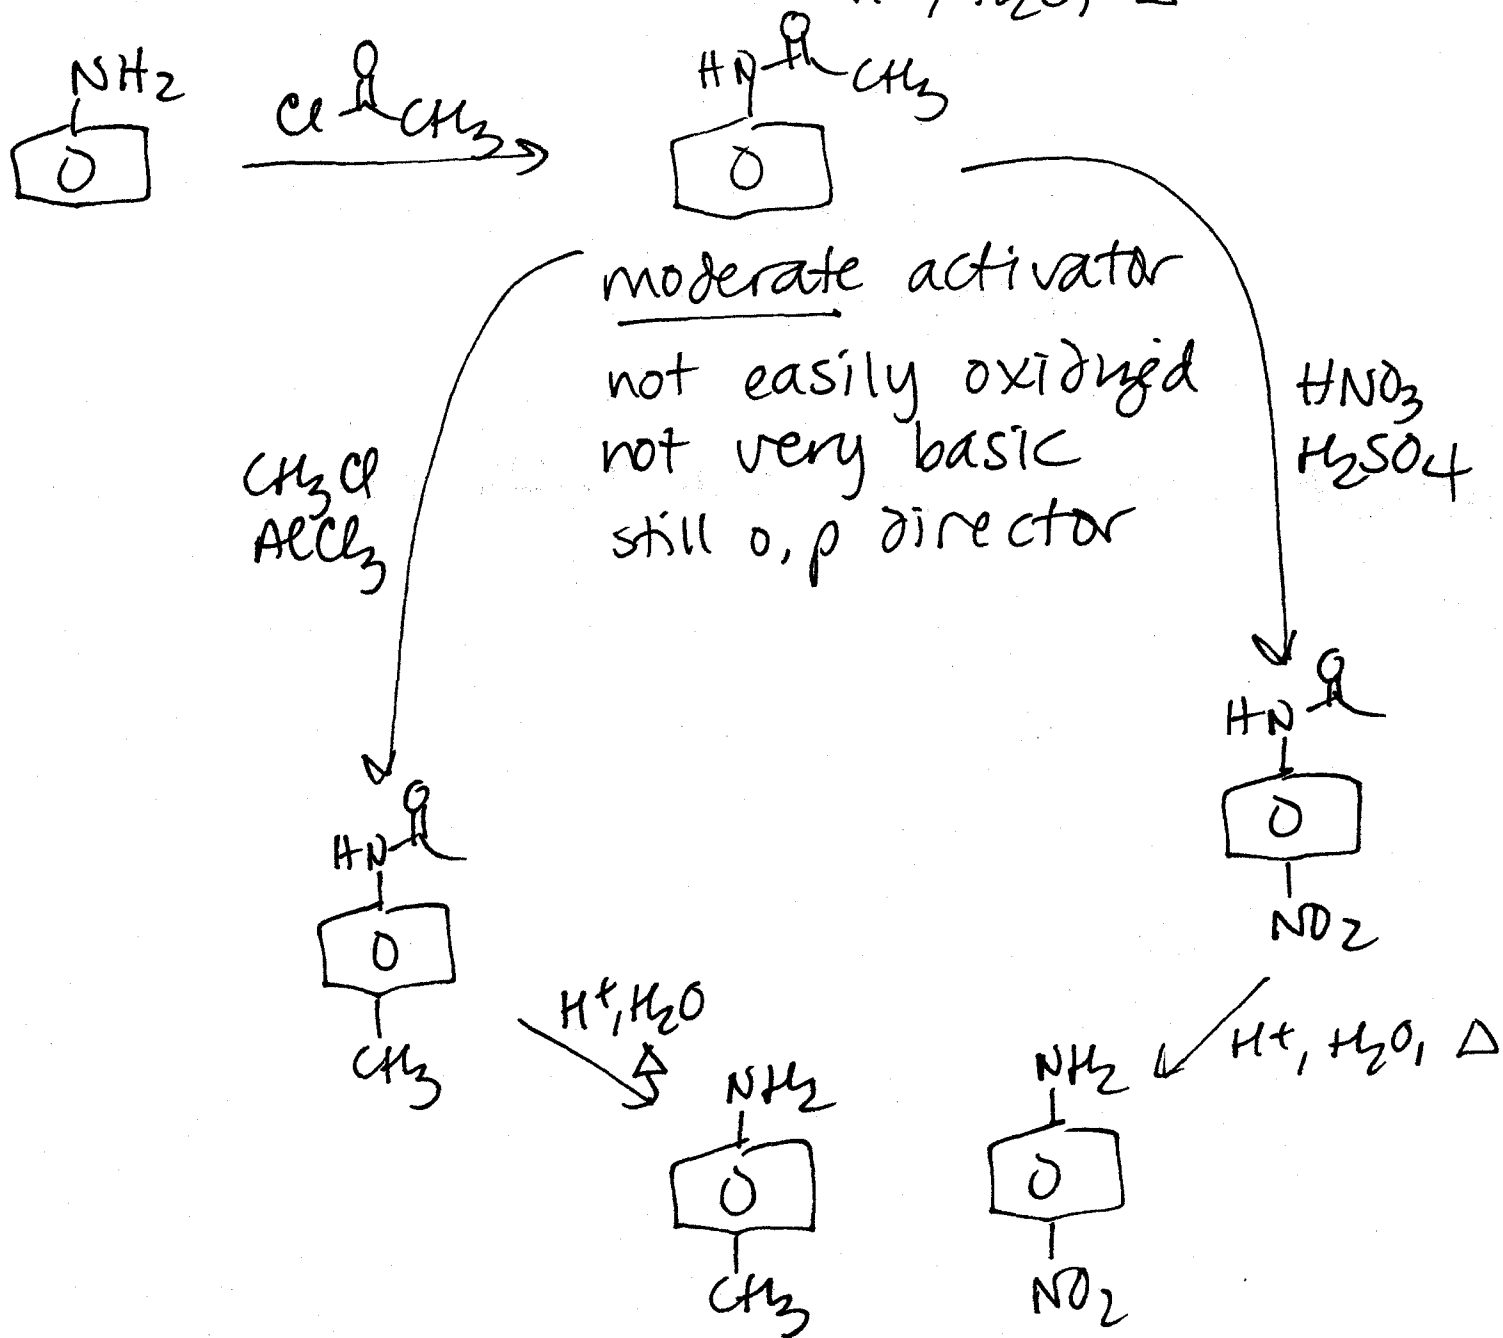 H₂O, Δ
NH₂
O
Cl
CH₃
O
HN
CH₃
O
O
O
moderate activator
not easily oxidized
not very basic
still o, p director
CH₃Cl
AlCl₃
HNO₃
H₂SO₄
O
HN
O
CH₃
O
HN
O
NO₂
H⁺, H₂O
Δ
H⁺, H₂O, Δ
NH₂
O
CH₃
NH₂
O
NO₂